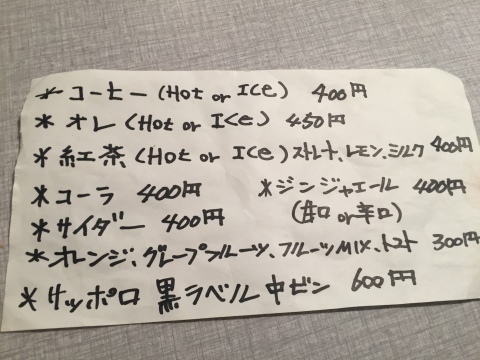 * コーヒー (Hot or Ice) 400円
* オレ (Hot or Ice) 450円
* 紅茶 (Hot or Ice) ストレート、レモン、ミルク 400円
* コーラ 400円 * ジンジャエール 400円
* サイダー 400円 (甘口 or 辛口)
* オレンジ、グレープフルーツ、フルーツMIX、トマト 300円
* サッポロ 黒ラベル 中ビン 600円